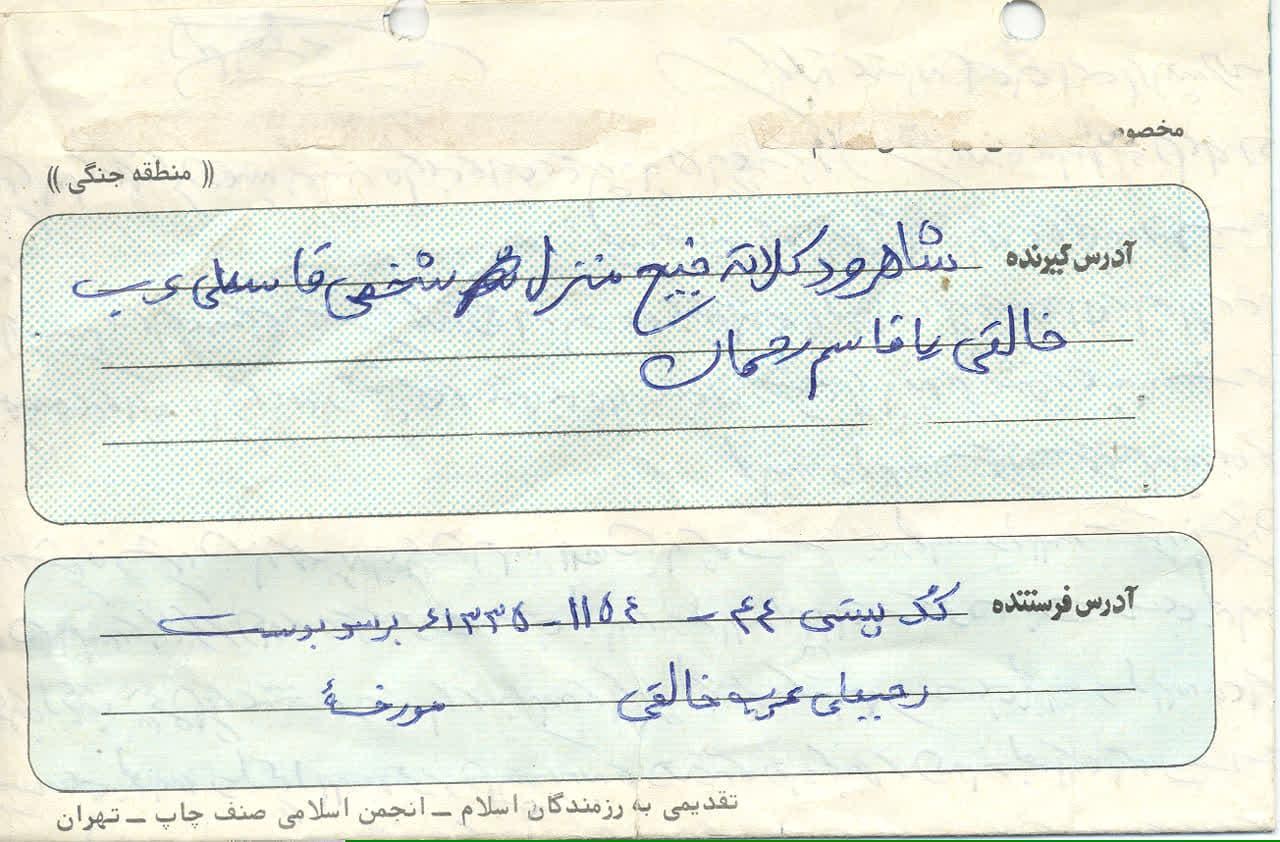 مخصوص
(( منطقه جنگی ))
آدرس گیرنده شاهرود کلاته خیج منزل شخصی قاسعلی عرب
خالقی یا قاسم رحمان
آدرس فرستنده کد پستی ۴۴ - ۱۱۵۴ - ۶۱۳۳۵
رجبعلی عرب خالقی مورخهٔ
تقدیمی به رزمندگان اسلام ــ انجمن اسلامی صنف چاپ ــ تهران